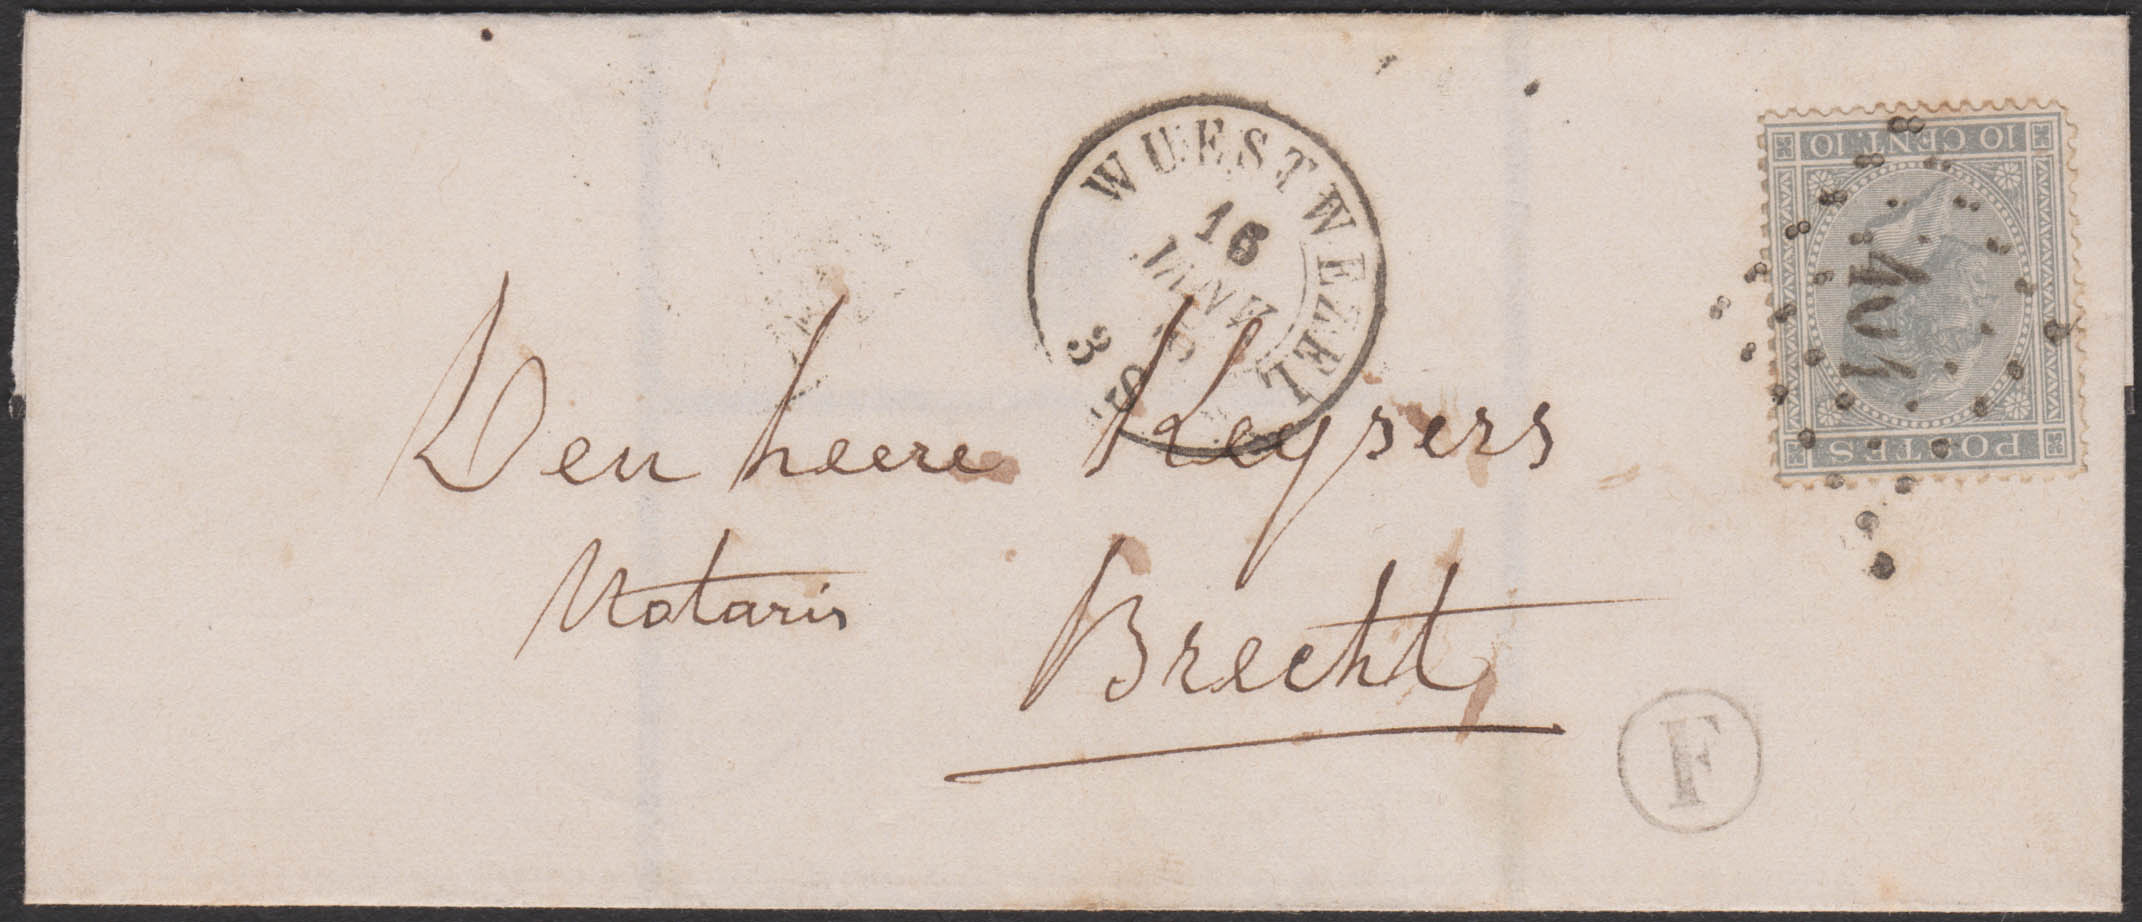 WUESTWEZEL
16
JANV
3 S
10 CENT. 10
POSTES
401
Den heere Keysers
Notaris
Brecht
F